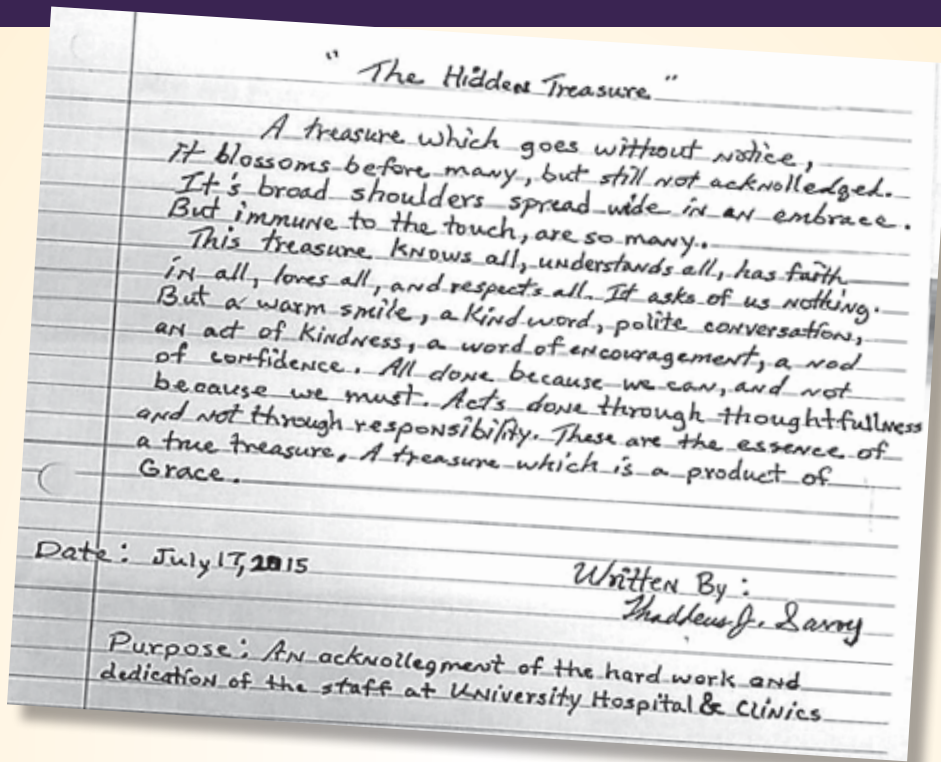 " The Hidden Treasure "
A treasure which goes without notice,
it blossoms before many, but still not acknolledged.
It's broad shoulders spread wide in an embrace.
But immune to the touch, are so many.
This treasure knows all, understands all, has faith
in all, loves all, and respects all. It asks of us nothing.
But a warm smile, a kind word, polite conversation,
an act of kindness, a word of encouragement, a nod
of confidence. All done because we can, and not
because we must. Acts done through thoughtfullness
and not through responsibility. These are the essence of
a true treasure. A treasure which is a product of
Grace.
Date: July 17, 2015
Written By:
Thaddeus J. Savoy
Purpose: An acknollegment of the hard work and
dedication of the staff at University Hospital & Clinics